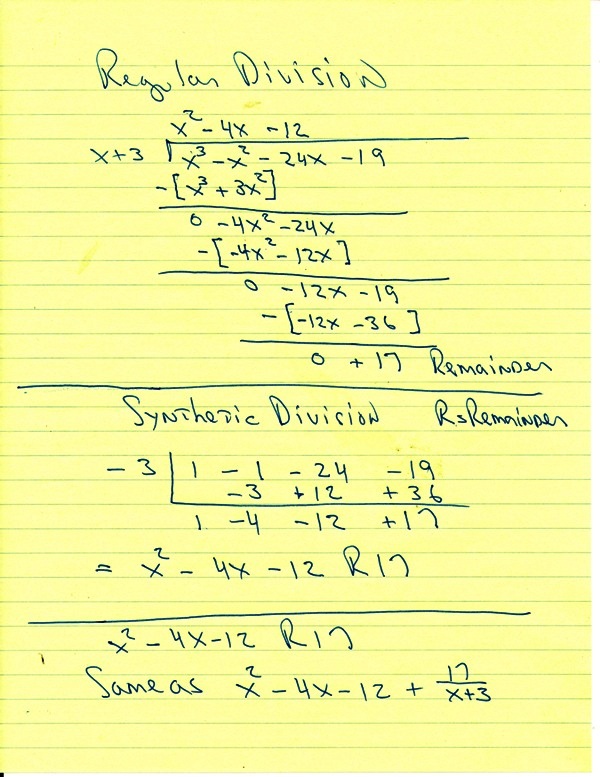 Regular Division
x² - 4x - 12
x+3 x³ - x² - 24x - 19
-[x³ + 3x²]
0 - 4x² - 24x
-[-4x² - 12x]
0 - 12x - 19
-[-12x - 36]
0 + 17 Remainder
Synthetic Division R=Remainder
-3 | 1 - 1 - 24 - 19
- 3 + 12 + 36
1 - 4 - 12 + 17
= x² - 4x - 12 R17
x² - 4x - 12 R17
Same as x² - 4x - 12 + 17/(x+3)